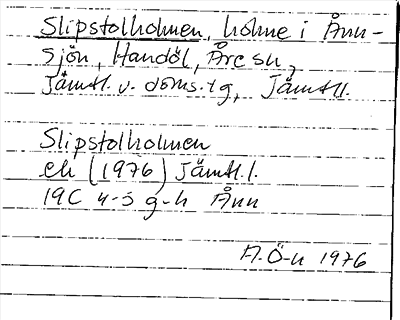 Slipstolholmen, holme i Ånn-
sjön, Handöl, Åre sn,
Jämtl. v. doms. tg, Jämtl.
Slipstolholmen
ek (1976) Jämtl. l.
19C 4-5 g-h Ånn
A.Ö-n 1976